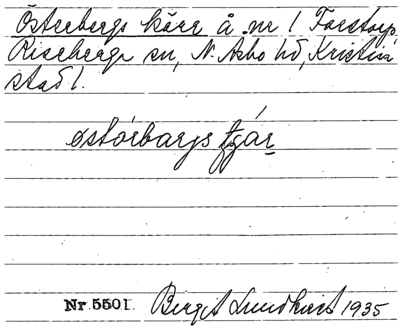 Österbergs kärr å nr 1 Forstorp
Riseberga sn, N. Åsbo hd, Kristian
stad l.
östórbarys
Nr 5501. Birgit Lundkvist 1935